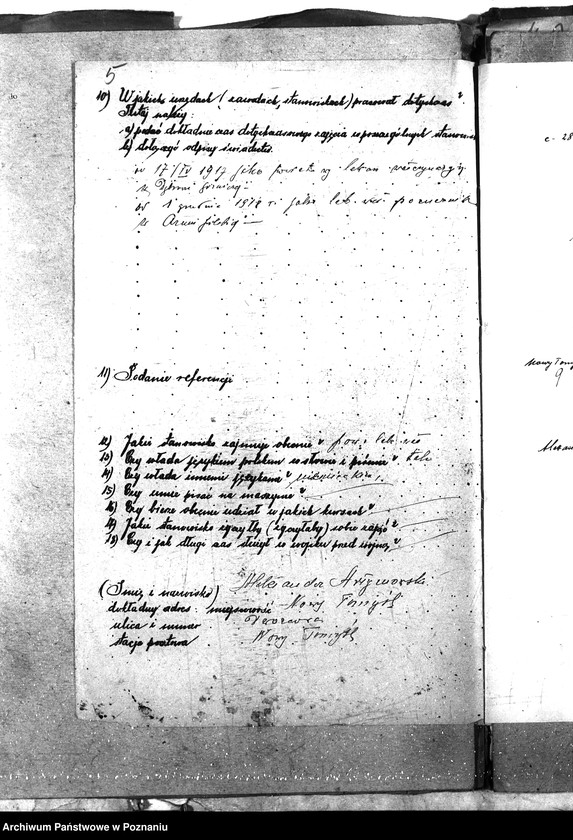 5
10) W jakich urzędach (zawodach, stanowiskach) pracował dotychczas?
Tutaj należy:
a) podać dokładnie czas dotychczasowego zajęcia w poszczególnych stanowis
b) dołączyć odpisy świadectw.
17/IV 1917 jako powiatowy lekarz
w
od 1 grudnia 1918 r. jako lek. wet. porucznik
w Armii Polskiej
11) Podanie referencji
12) Jakie stanowisko zajmuje obecnie? pow. lek. wet
13) Czy włada językiem polskim w słowie i piśmie? tak
14) Czy włada innemi językami?
15) Czy umie pisać na maszynie?
16) Czy bierze obecnie udział w jakich kursach?
17) Jakie stanowisko życzyłby (życzyłaby) sobie zająć?
18) Czy i jak długi czas służył w wojsku przed wojną?
(Imię i nazwisko) Aleksander
dokładny adres: miejscowość Nowy Tomyśl
ulica i numer
stacja pocztowa Nowy Tomyśl
c. 28
Nowy Tomy
Aleksan
Archiwum Państwowe w Poznaniu